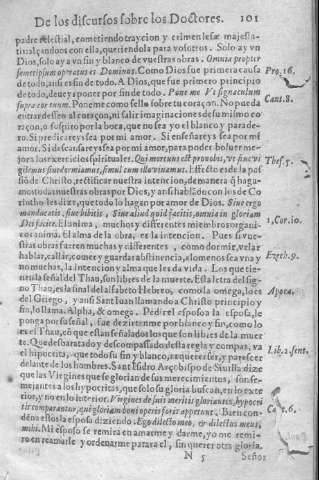 De los discursos sobre los Doctores. 101
padre celestial, cometiendo traycion y crimen lesæ majesta-
tis alçandoos con ella, queriendola para vosotros. Solo ay vn
Dios, solo aya vn fin y blanco de vuestras obras. Omnia propter
semetipsum operatus est Dominus. Como Dios fue primera causa
de todo, assi es fin de todo. A Dios, que fue primero principio
Pro.16.
de todo, deueys poner por fin de todo. Pone me Vt signaculum
supra cor tuum. Poneme como sello sobre tu coraçon. No pueda
Cant.8.
entrar deseo al coraçon, ni salir imaginaciones de su mismo co
raçon, o sospiro por la boca, que no sea yo el blanco y parade-
ro. Si predicareys sea por mi amor. Si enseñareys sea por mi
amor. Si descansareys sea por mi amor, para poder boluer me-
jor a los exercicios spirituales. Qui mortuus est pro nobis, vt siue vi
Thes.5.
gilemus siue dormiamus, simul cum illo viuamus. Effecto es de la pas
sió de Christo, rectificar nuestra intencion, de manera q̃ haga-
mos todas nuestras obras por Dios, y assi hablãdo con los de Co
rintho les dize, que todo lo hagan por amor de Dios. Siue ergo
manducatis, siue bibitis, Siue aliud quid facitis, omnia in gloriam
Dei facite. El anima, muchos y differentes miembros organi-
1,Cor.10.
co anima. El alma de la obra, es la intencion. Pues si vues-
tras obras fueren muchas y differentes, como dormir, velar
hablar, callar, comer y guardar abstinencia, a lo menos sea vna y
Ezeh.9.
no muchas, la intencion y alma que les da vida. Los que tie-
nen la señal del Thau, son libres de la muerte. Esta letra del sig-
no Thau, es la final del alfabeto Hebreo, como la omega, lo es
Apoca.
del Griego, y ansi Sant Iuan llamando a Christo principio y
fin, lo llama. Alpha, & omega. Pedir el esposo a la esposa, le
ponga por su señal, fue dezir tenme por blanco y fin, como lo
es el Thau, cõ que estan señalados los que son libres de la muer
te. Que desbaratado y descompassado desta regla y compas, va
el hipocrita, que todo su fin y blanco, es querer ser, y parescer
Lib.2.sent.
delante de los hombres. Sant Isidro Arçobispo de Siuilla dize
que las Virgines que se glorian de sus merecimientos, son se-
mejantes a los hypocritas, que solo su gloria buscan, en lo exte
rior, y no en lo interior. Virgines de suis meritis gloriantes, hypocri
tis comparantur, qui gloriam boni operis foris appetunt. Bien con-
Ca 1.6.
dena estos la esposa diziendo. Ego dilecto meo, & dilectus meus,
mihi. Mi esposo se remira en amarme y darme, yo me remi-
ro en amarle y ordenarme para el, sin querer otra gloria.
N 5 Señor